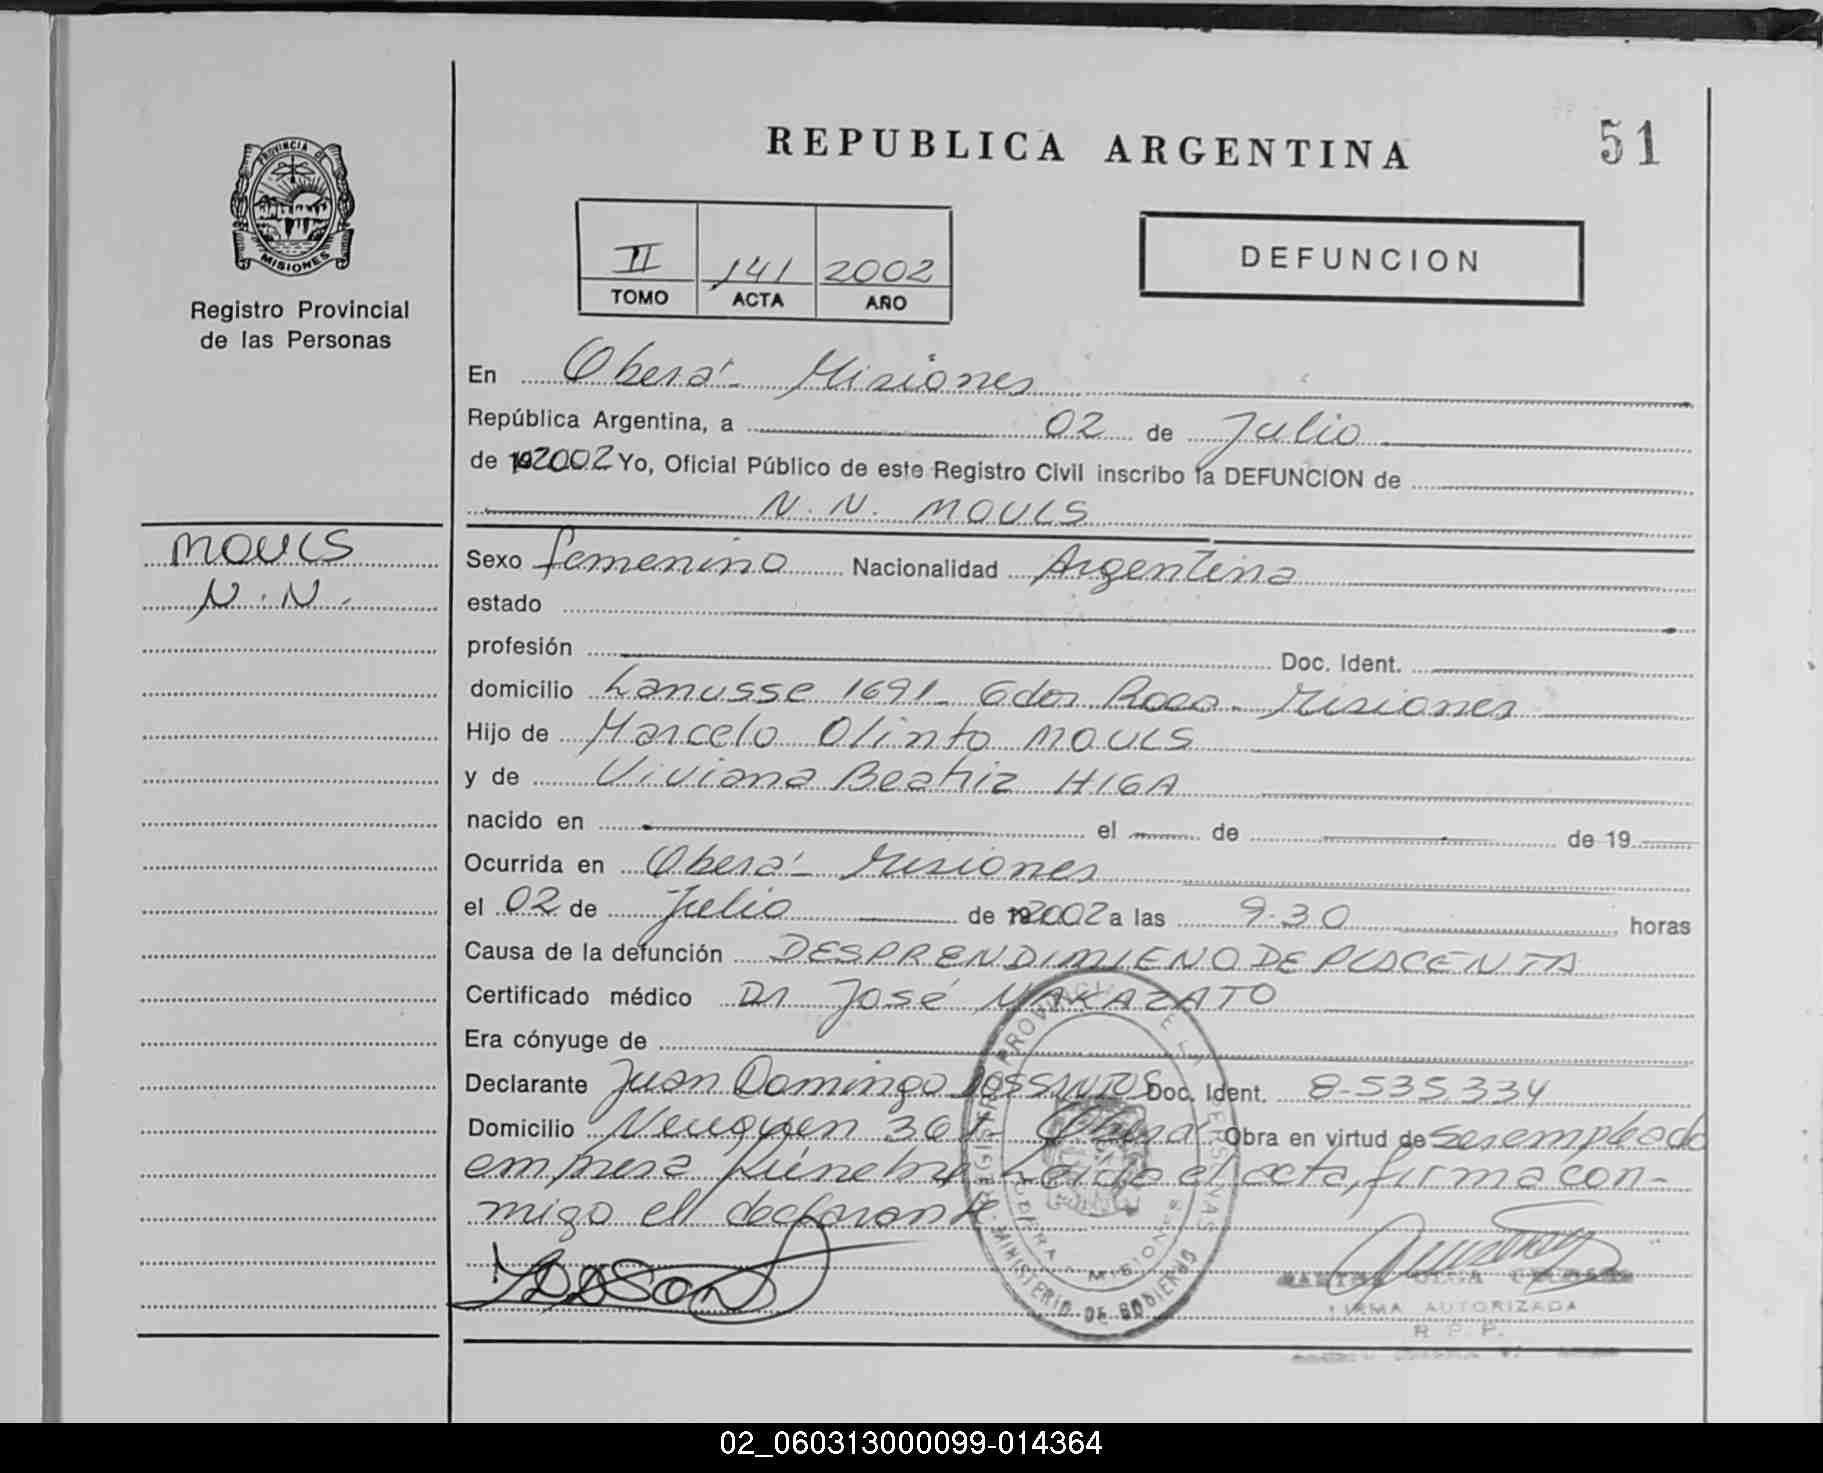 REPUBLICA ARGENTINA
51
PROVINCIA DE
MISIONES
Registro Provincial
de las Personas
II 141 2002
TOMO ACTA AÑO
DEFUNCION
En Oberá - Misiones
República Argentina, a 02 de Julio
de 192002 Yo, Oficial Público de este Registro Civil inscribo la DEFUNCION de
N. N. MOULS
MOULS
N. N.
Sexo femenino Nacionalidad Argentina
estado
profesión Doc. Ident.
domicilio Lanusse 1691 - Gdor Roca - Misiones
Hijo de Marcelo Olinto MOULS
y de Viviana Beatriz HIGA
nacido en el de de 19
Ocurrida en Oberá - Misiones
el 02 de Julio de 192002 a las 9.30 horas
Causa de la defunción DESPRENDIMIENO DE PLACENTA
Certificado médico Dr José NAKAZATO
Era cónyuge de
Declarante Juan Domingo DOSSANTOS Doc. Ident. 8-535.334
Domicilio Neuquen 367 - Oberá Obra en virtud de ser empleado
empresa fúnebre Leida el acta, firma con-
migo el declarante
REGISTRO PROVINCIAL DE LAS PERSONAS
MINISTERIO DE GOBIERNO
MISIONES
OLGA
FIRMA AUTORIZADA
R. P. P.
02_060313000099-014364